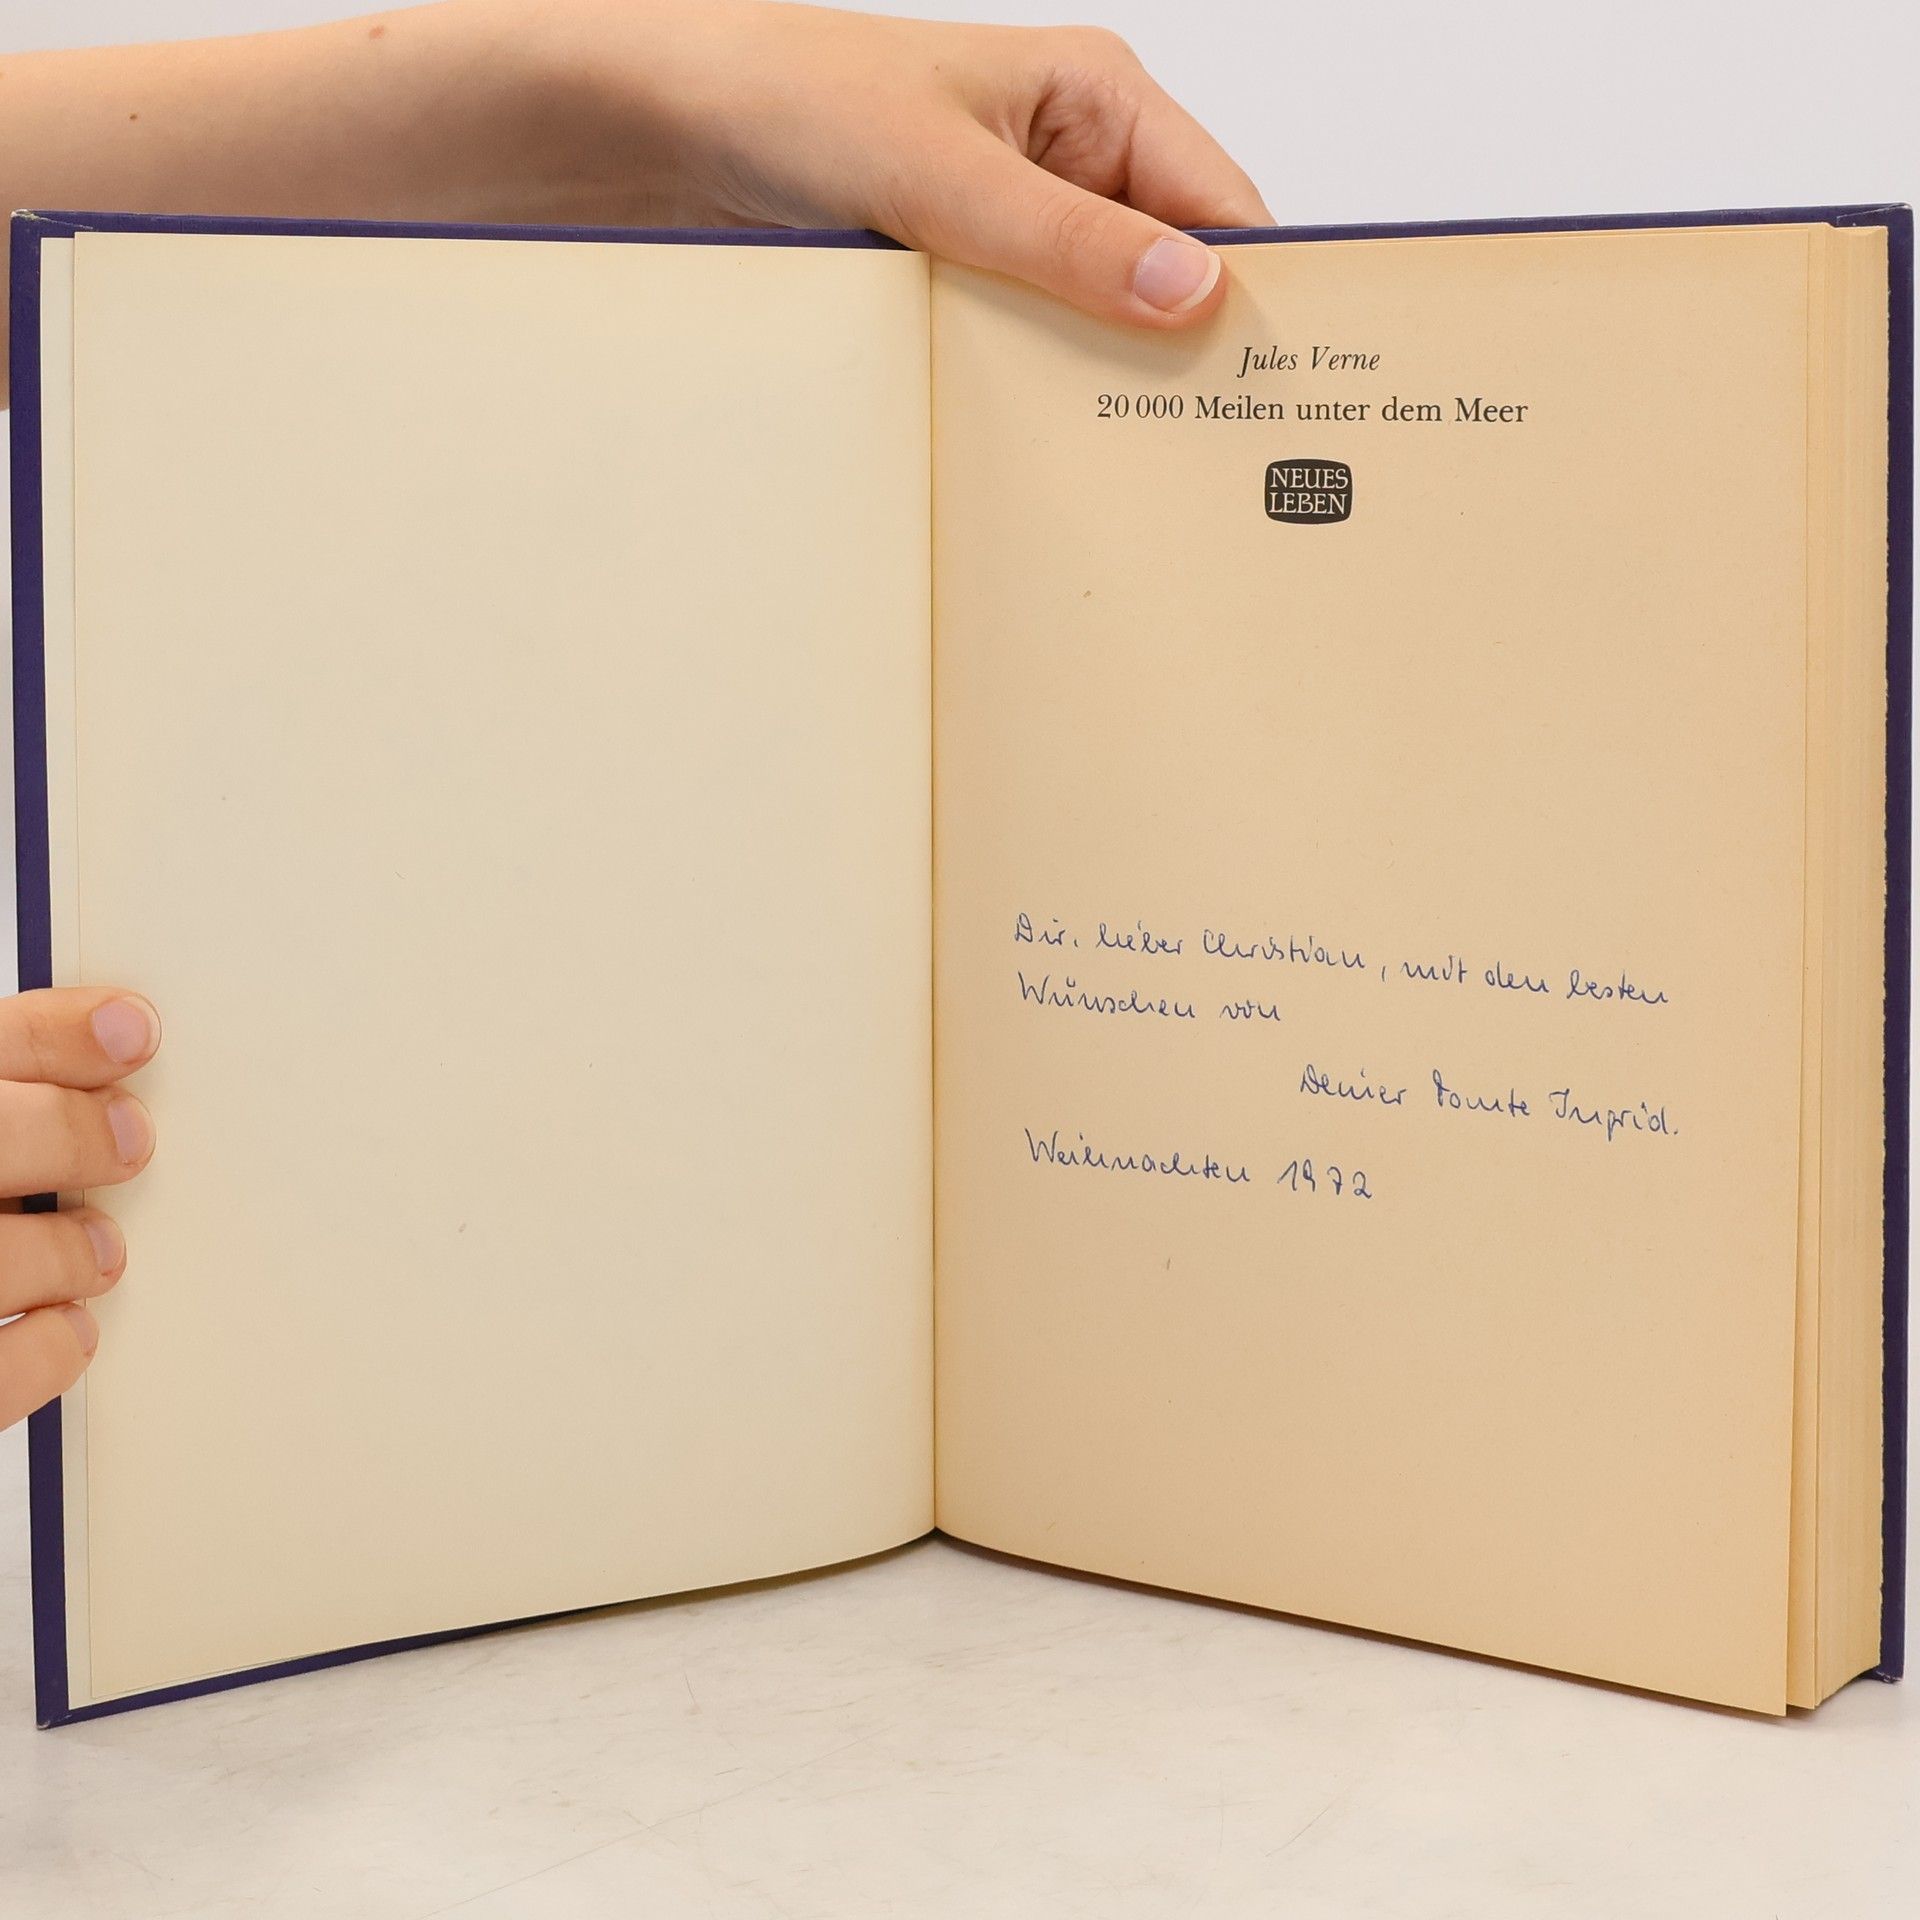 Jules Verne
20 000 Meilen unter dem Meer
NEUES
LEBEN
Dir, lieber Christian, mit den besten
Wünschen von
Deiner Tante Ingrid.
Weihnachten 1972